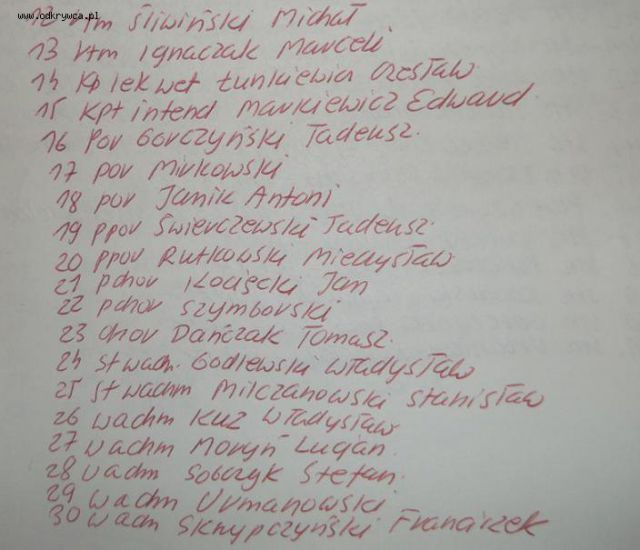 www.odkrywca.pl
12 rtm Śliwiński Michał
13 rtm Ignaczak Marceli
14 Kp lek wet Łunkiewicz Czesław
15 Kpt intend Markiewicz Edward
16 Por Gorczyński Tadeusz
17 por Mirkowski
18 por Janik Antoni
19 ppor Świerczewski Tadeusz
20 ppor Rutkowski Mieczysław
21 pchor Kocięcki Jan
22 pchor Szymborski
23 chor Dańczak Tomasz
24 st wach. Godlewski Władysław
25 st wachm Milczanowski Stanisław
26 wachm Kuź Władysław
27 wachm Moryń Lucjan
28 wachm Sobczyk Stefan
29 wachm Urmanowski
30 wachm Skrypczyński Franciszek